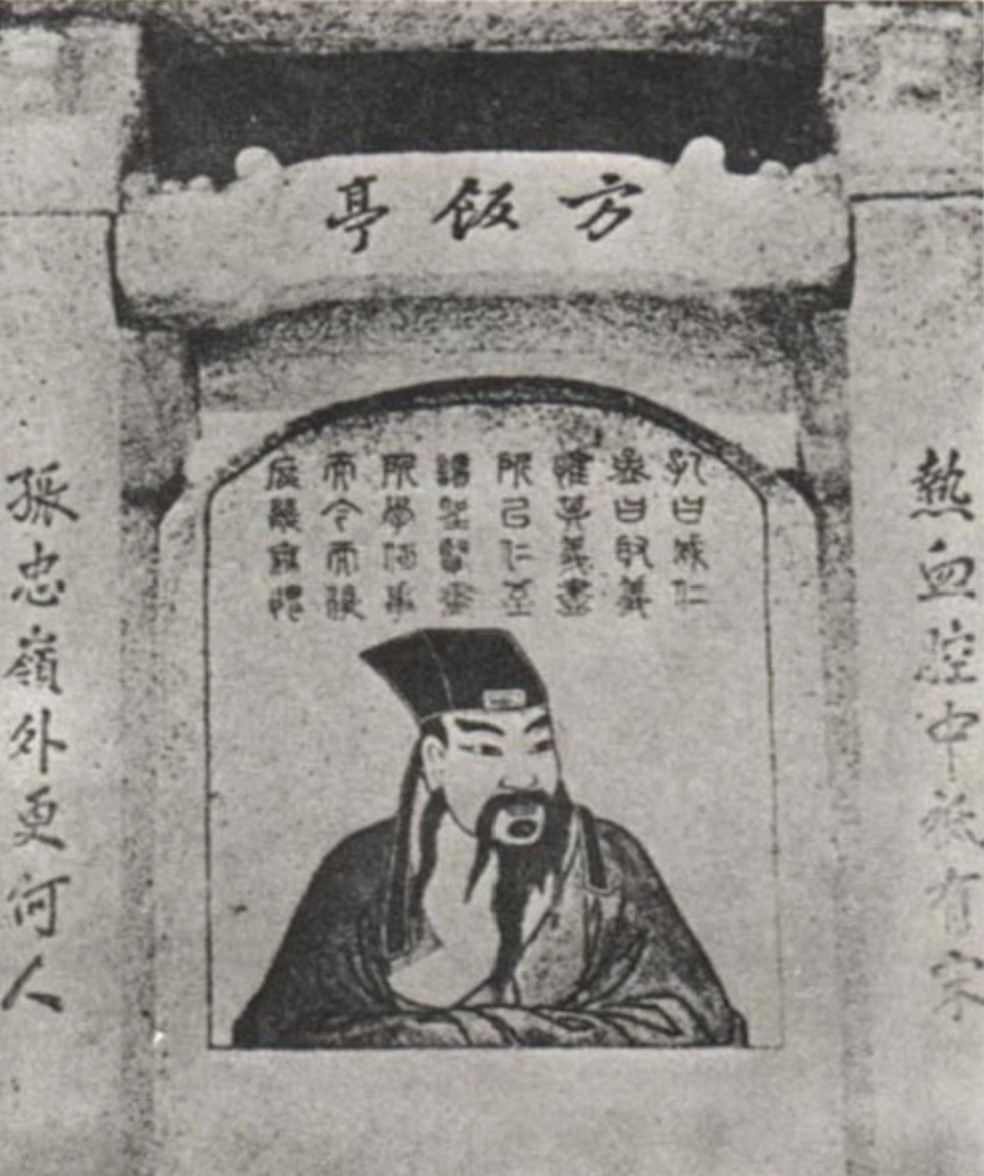 方飯亭
熱血腔中祇有宋
孔曰成仁
孟曰取義
惟其義盡
所以仁至
讀聖賢書
所學何事
而今而後
庶幾無愧
孤忠嶺外更何人